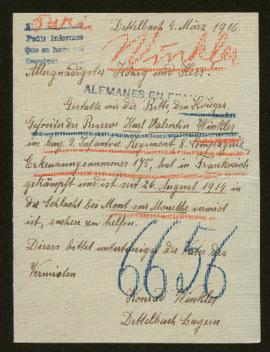 Paris
Pedir informes
Que se ha
Dettelbach 4. März 1916
Winkler
Allergnädigster König und Herr.
ALEMANES EN FRANCIA
Gestatte mir die Bitte, den Krieger
Gefreiter der Reserve Karl Valentin Winkler
im bay. Infantrie Regiment 8. Compagnie
Erkenungsnummer 175, hat in Frankreich
gekämpft und ist seit 26. August 1914 in
der Schlacht bei Mont sur Meurthe vermist
ist, suchen zu helfen.
Dieses bittet untertänigst der Vater des
Vermisten
6656
Konrad Winkler
Dettelbach Bayern